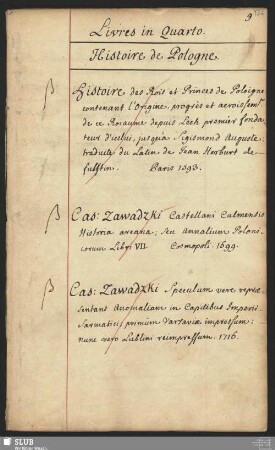 9
Livres in Quarto.
Histoire de Pologne.
β Histoire des Rois et Princes de Poloigne
contenant l'Origine, progrès et accroissemt
de ce Royaume depuis Lech premier fonda-
teur d'icelui, jusqu'à Sigismond Auguste:
traduite du Latin de Jean Herburt de
Fulstin. Paris 1593.
β Cas: Zawadzki Castellani Culmensis
Historia arcana; seu Annalium Poloni-
corum Libri VII. Cosmopoli. 1699.
β Cas: Zawadzki Speculum vere reprae-
sentans Anomaliam in Capitibus Imperii
Sarmatici primum Varsaviae impressum:
nunc vero Lublini reimpressum. 1716.
SLUB
Wir führen Wissen.